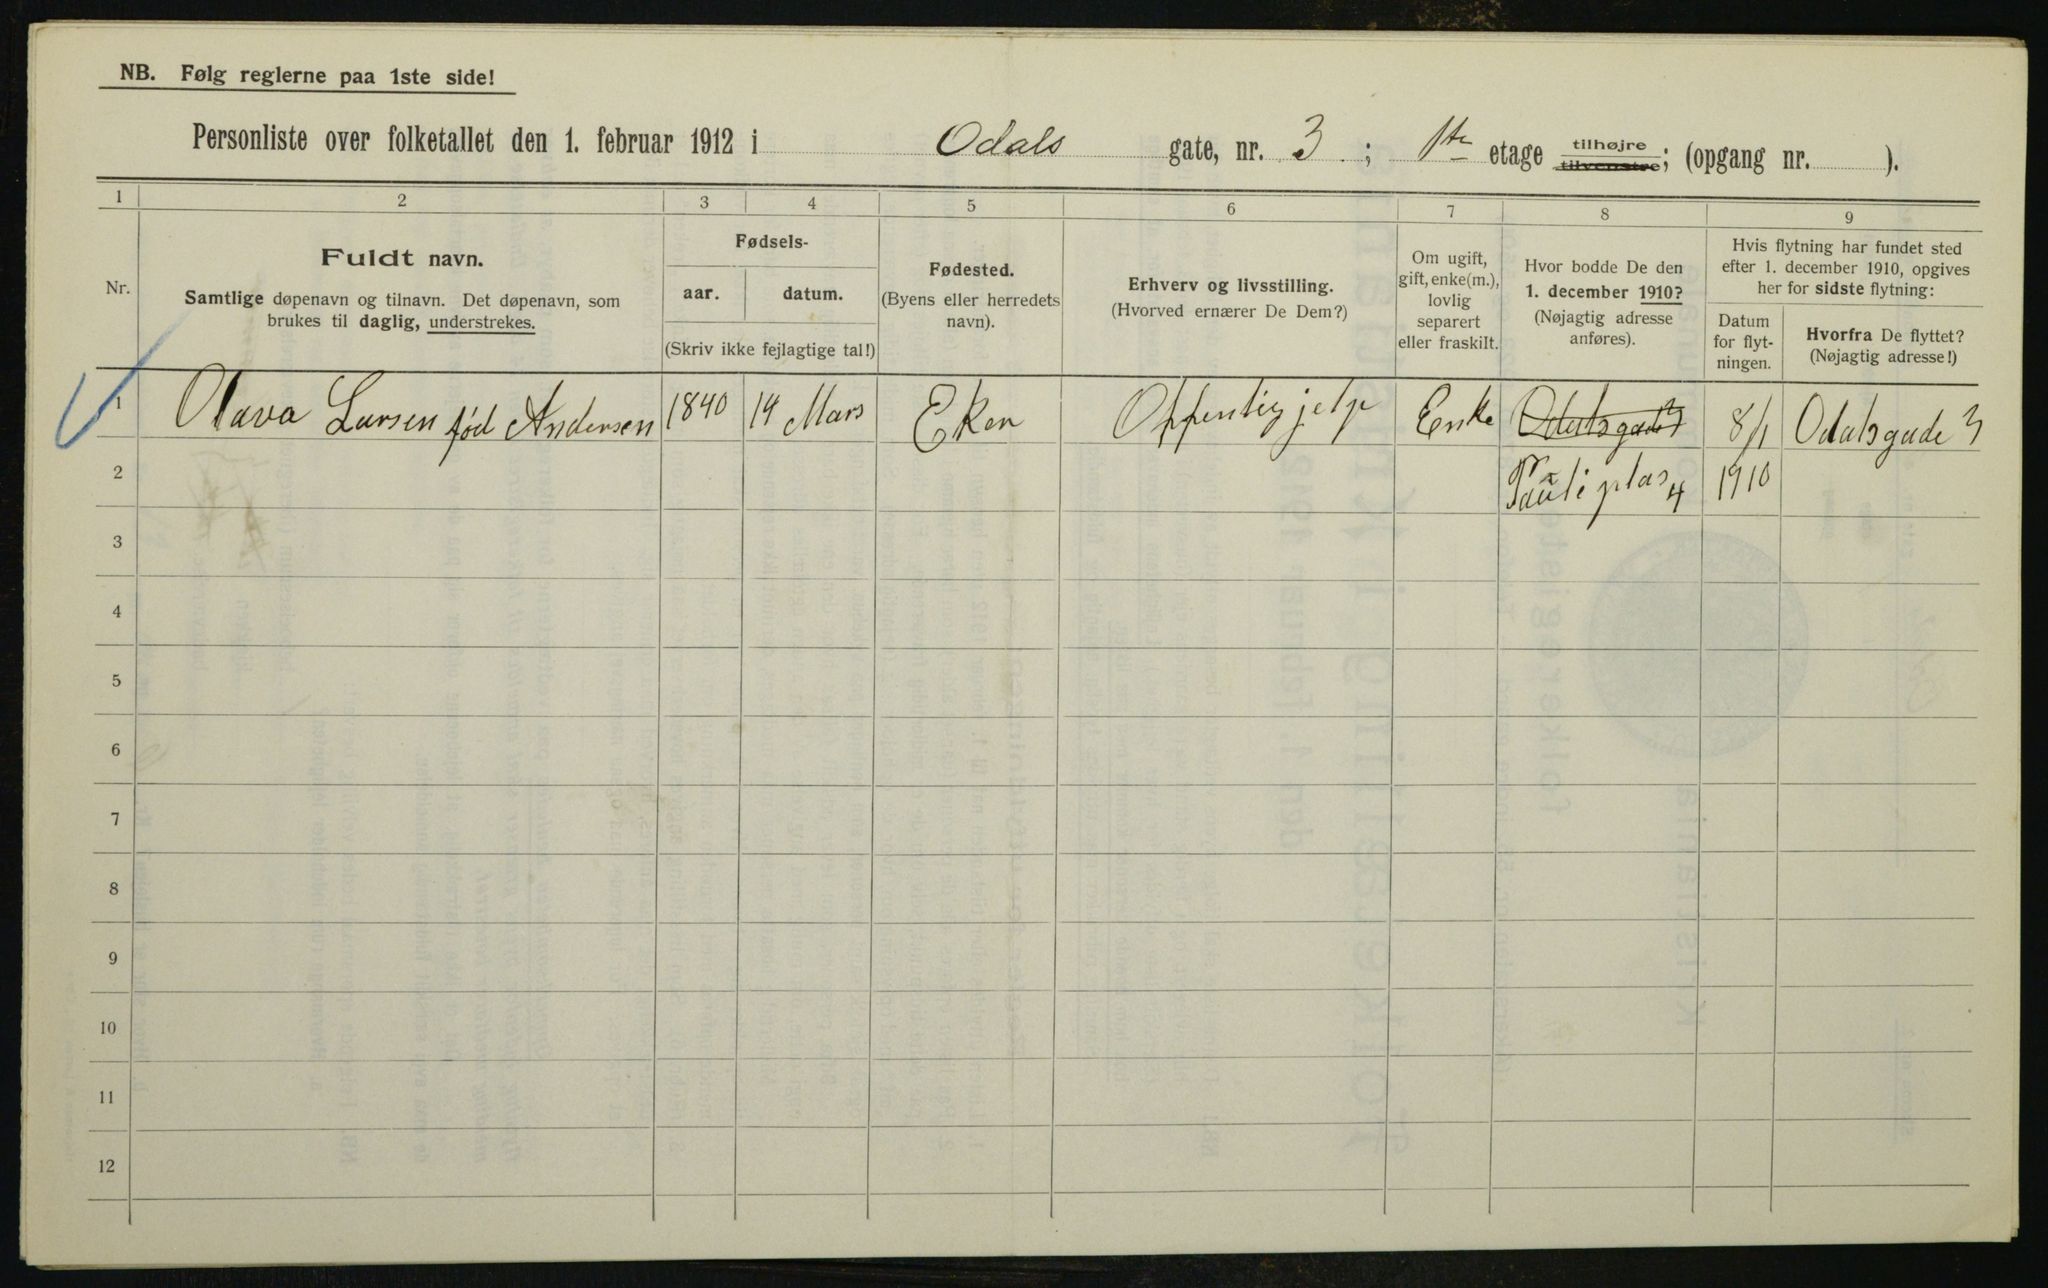 NB. Følg reglerne paa 1ste side!
Personliste over folketallet den 1. februar 1912 i Odals gate, nr. 3 ; 1ste etage tilhøjre tilvenstre; (opgang nr. ).
1 2 3 4 5 6 7 8 9
Nr.
Fuldt navn.
Samtlige døpenavn og tilnavn. Det døpenavn, som
brukes til daglig, understrekes.
Fødsels-
aar. datum.
(Skriv ikke fejlagtige tal!)
Fødested.
(Byens eller herredets
navn).
Erhverv og livsstilling.
(Hvorved ernærer De Dem?)
Om ugift,
gift, enke(m.),
lovlig
separert
eller fraskilt.
Hvor bodde De den
1. december 1910?
(Nøjagtig adresse
anføres).
Hvis flytning har fundet sted
efter 1. december 1910, opgives
her for sidste flytning:
Datum
for flyt-
ningen.
Hvorfra De flyttet?
(Nøjagtig adresse!)
1 Olava Larsen fød Andersen 1840 14 Mars Eker Offentlig jelp Enke Odalsgade 3 8/1 Odalsgade 3
2 Pauli plas 4 1910
3
4
5
6
7
8
9
10
11
12